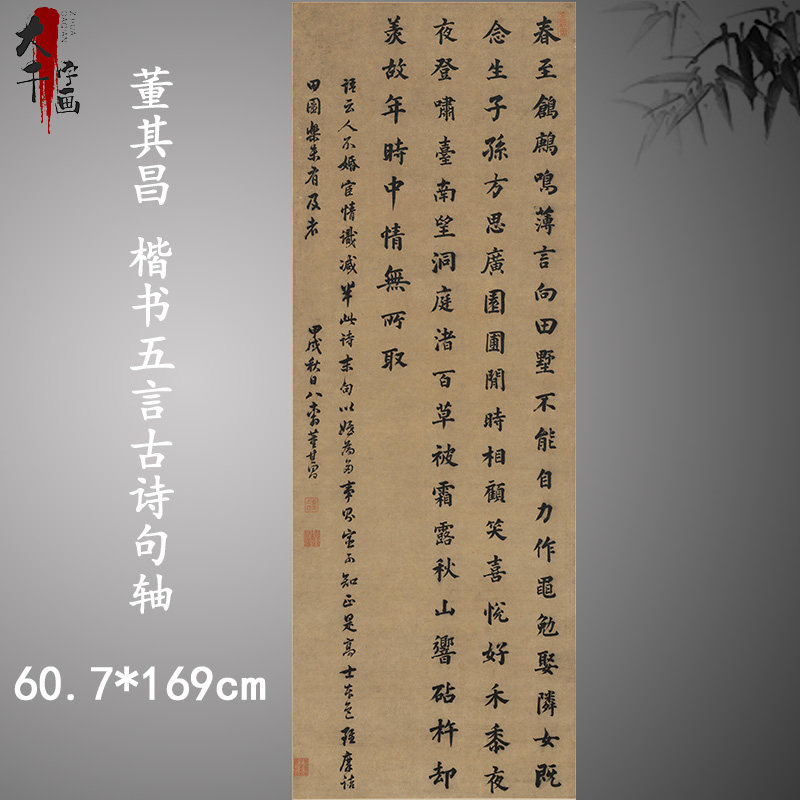 大千
字画
ZIHUA
DAQIAN
董其昌 楷书五言古诗句轴
60.7*169cm
春至鶬鶊鳴薄言向田墅不能自力作黽勉娶隣女既
念生子孫方思廣園圃閒時相顧笑喜悅好禾黍夜
夜登嘯臺南望洞庭渚百草被霜露秋山響砧杵却
羨故年時中情無所取
語云人不婚宦情識減半此詩末句以婚為多事思室不知正是高士本色雖摩詰
田園樂未有及者
甲戌秋日八十翁董其昌